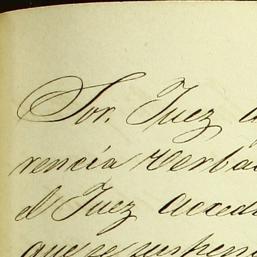 Sor. Juez a
rencia Verbal
el Juez acced
que se suspen